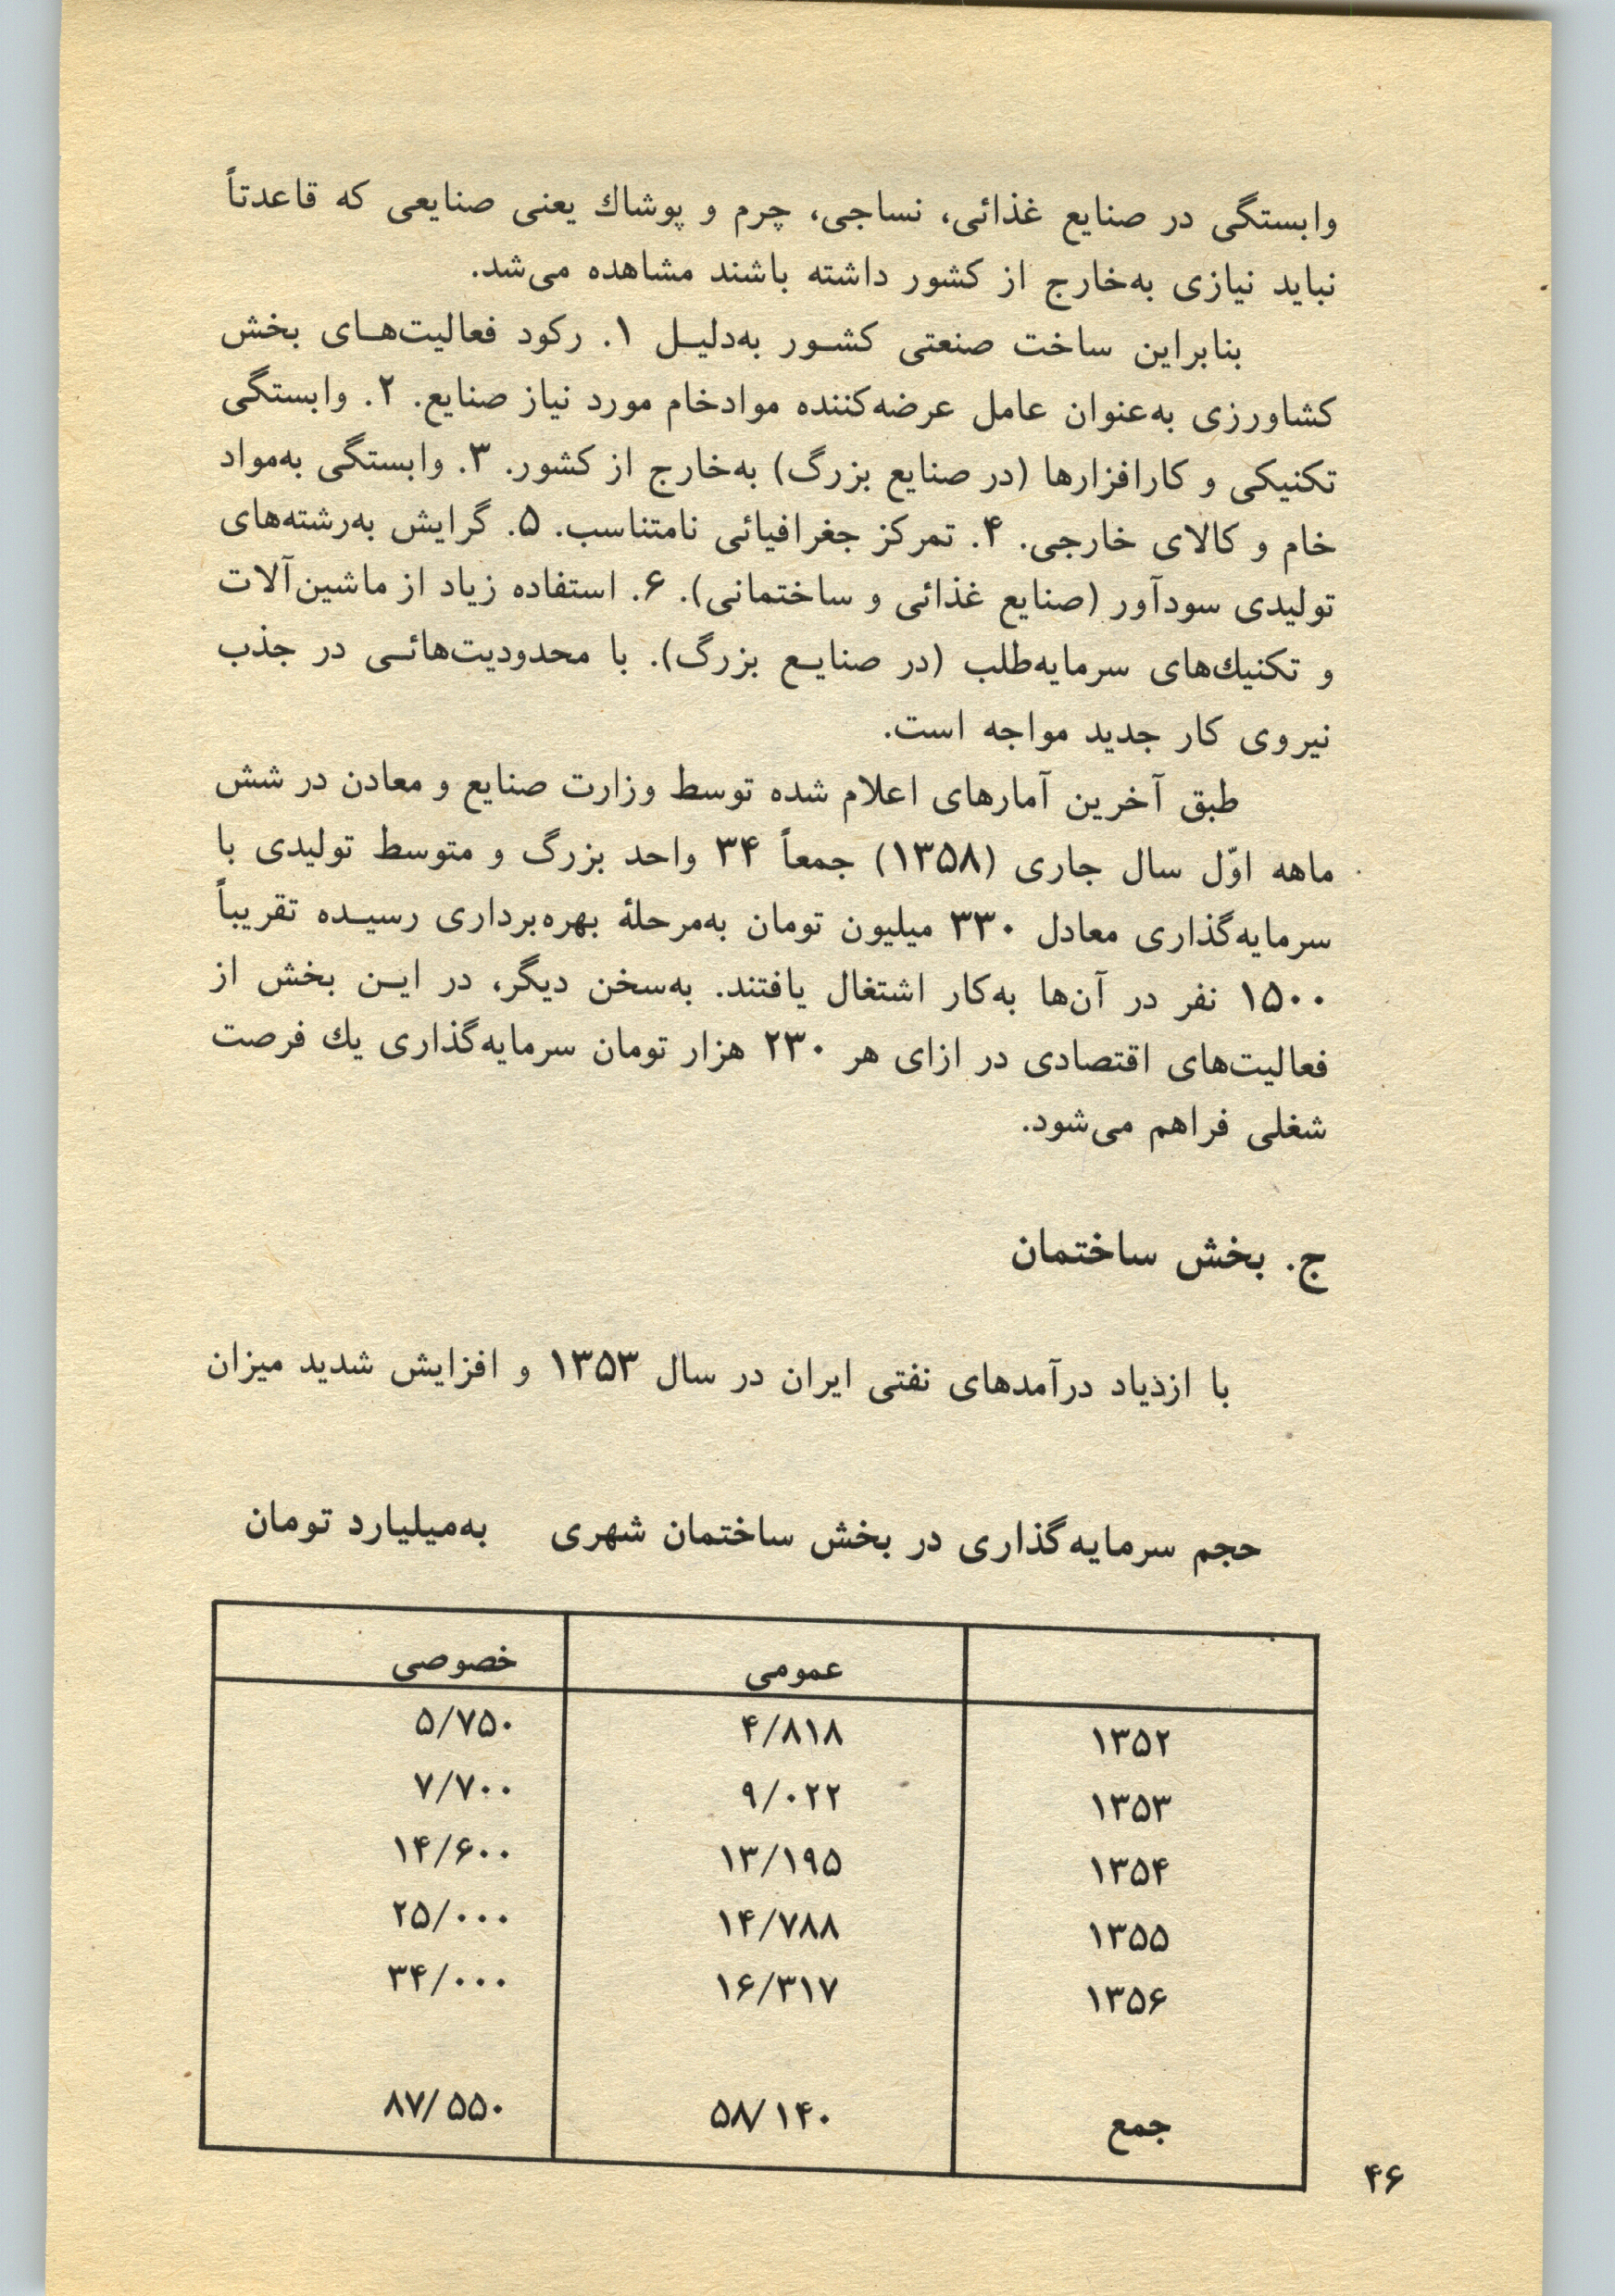 وابستگی در صنایع غذائی، نساجی، چرم و پوشاك یعنی صنایعی که قاعدتاً
نباید نیازی به‌خارج از کشور داشته باشند مشاهده می‌شد.
بنابراین ساخت صنعتی کشـور به‌دلیـل ۱. رکود فعالیت‌هـای بخش
کشاورزی به‌عنوان عامل عرضه‌کننده موادخام مورد نیاز صنایع. ۲. وابستگی
تکنیکی و کارافزارها (در صنایع بزرگ) به‌خارج از کشور. ۳. وابستگی به‌مواد
خام و کالای خارجی. ۴. تمرکز جغرافیائی نامتناسب. ۵. گرایش به‌رشته‌های
تولیدی سودآور (صنایع غذائی و ساختمانی). ۶. استفاده زیاد از ماشین‌آلات
و تکنیك‌های سرمایه‌طلب (در صنایـع بزرگ). با محدودیت‌هائـی در جذب
نیروی کار جدید مواجه است.
طبق آخرین آمارهای اعلام شده توسط وزارت صنایع و معادن در شش
ماهه اوّل سال جاری (۱۳۵۸) جمعاً ۳۴ واحد بزرگ و متوسط تولیدی با
سرمایه‌گذاری معادل ۳۳۰ میلیون تومان به‌مرحلهٔ بهره‌برداری رسیـده تقریباً
۱۵۰۰ نفر در آن‌ها به‌کار اشتغال یافتند. به‌سخن دیگر، در ایـن بخش از
فعالیت‌های اقتصادی در ازای هر ۲۳۰ هزار تومان سرمایه‌گذاری یك فرصت
شغلی فراهم می‌شود.
ج. بخش ساختمان
با ازدیاد درآمدهای نفتی ایران در سال ۱۳۵۳ و افزایش شدید میزان
حجم سرمایه‌گذاری در بخش ساختمان شهری به‌میلیارد تومان
عمومی خصوصی
۱۳۵۲ ۴/۸۱۸ ۵/۷۵۰
۱۳۵۳ ۹/۰۲۲ ۷/۷۰۰
۱۳۵۴ ۱۳/۱۹۵ ۱۴/۶۰۰
۱۳۵۵ ۱۴/۷۸۸ ۲۵/۰۰۰
۱۳۵۶ ۱۶/۳۱۷ ۳۴/۰۰۰
جمع ۵۸/۱۴۰ ۸۷/۵۵۰
۴۶